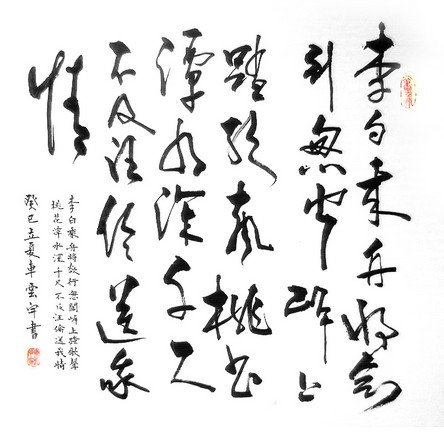 李白乘舟将欲
行忽闻岸上
踏歌声桃花
潭水深千尺
不及汪伦送我
情
李白乘舟將欲行忽聞岸上踏歌聲
桃花潭水深千尺不及汪倫送我情
癸巳立夏車雲宇書